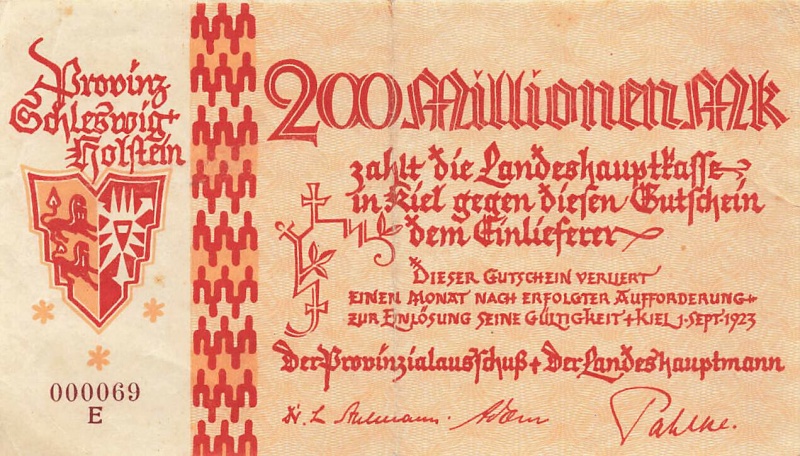 Provinz
Schleswig-
Holstein
000069
E
200 Millionen Mk
zahlt die Landeshauptkasse
in Kiel gegen diesen Gutschein
dem Einlieferer
Dieser Gutschein verliert
einen Monat nach erfolgter Aufforderung
zur Einlösung seine Gültigkeit + Kiel 1. Sept. 1923
Der Provinzialausschuß + Der Landeshauptmann
Pahlke.